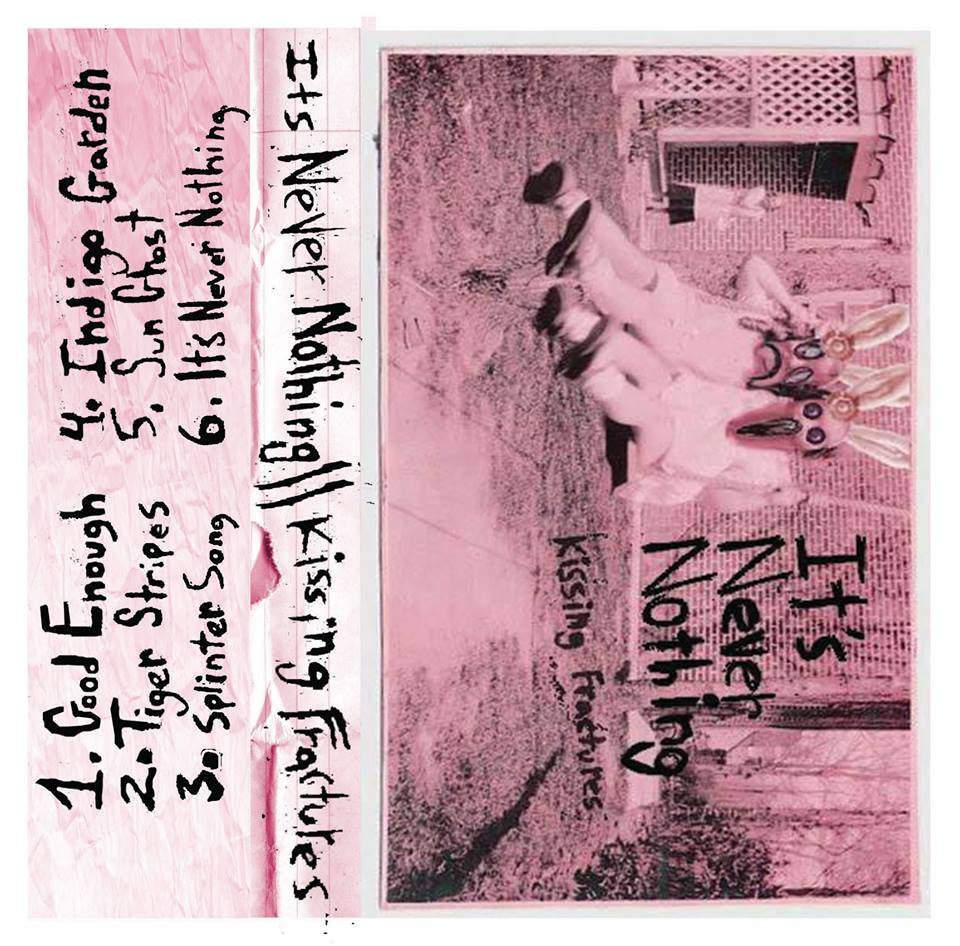 1. Good Enough
2. Tiger Stripes
3. Splinter Song
4. Indigo Garden
5. Sun Ghost
6. It's Never Nothing
Its Never Nothing // Kissing Fractures
It's
Never
Nothing
Kissing Fractures